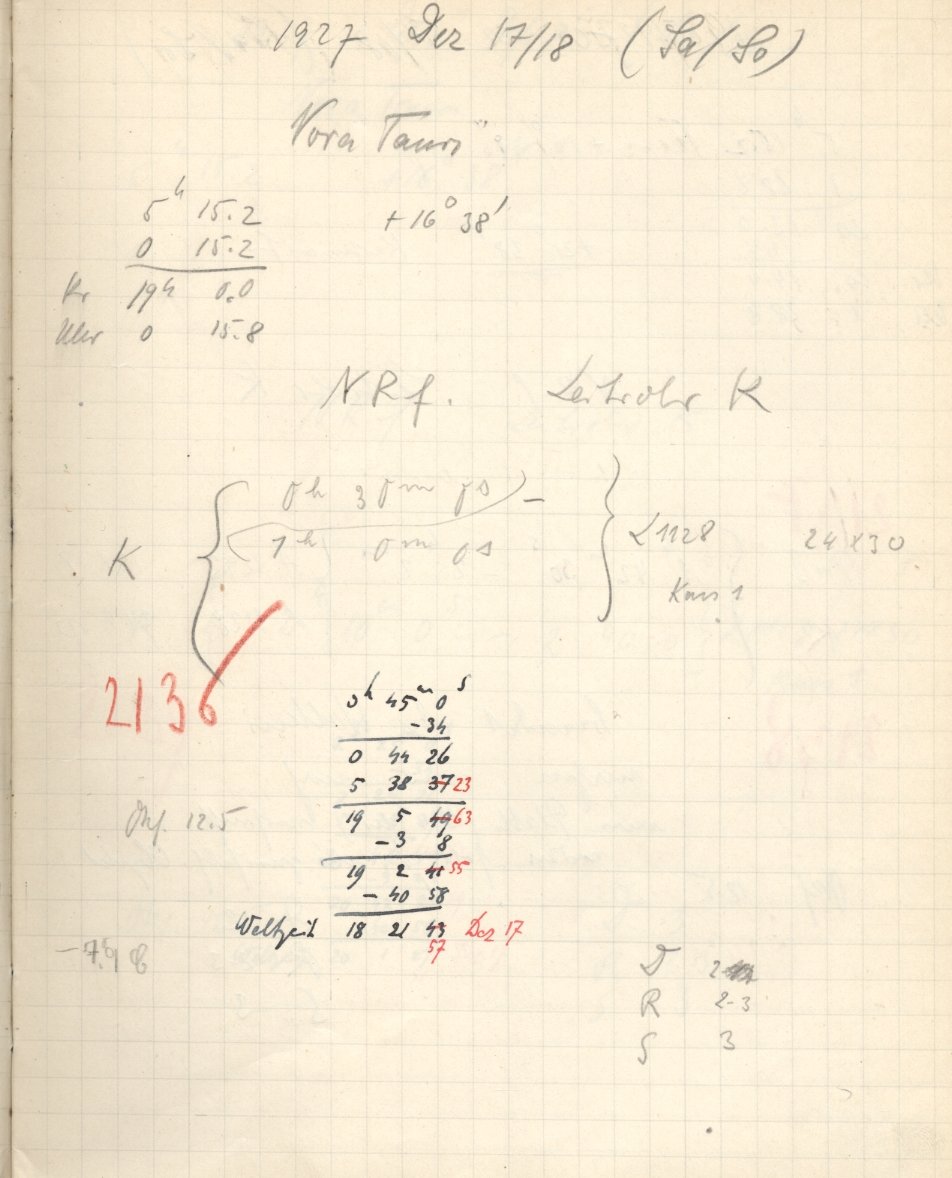 1927 Dez 17/18 (Sa/So)
Nova Tauri
5h 15.2 +16° 38'
0 15.2
Kr 19h 0.0
Uhr 0 15.8
NRf. Leitrohr K
0h 30m 0s –
K 1h 0m 0s L1128 24x30
2136
0h 45m 0s
-34
0 44 26
5 38 37 23
19 5 49 63
-3 8
19 2 41 55
-40 58
Weltzeit 18 21 43 Dez 17
57
12.5
D 2
R 2-3
S 3